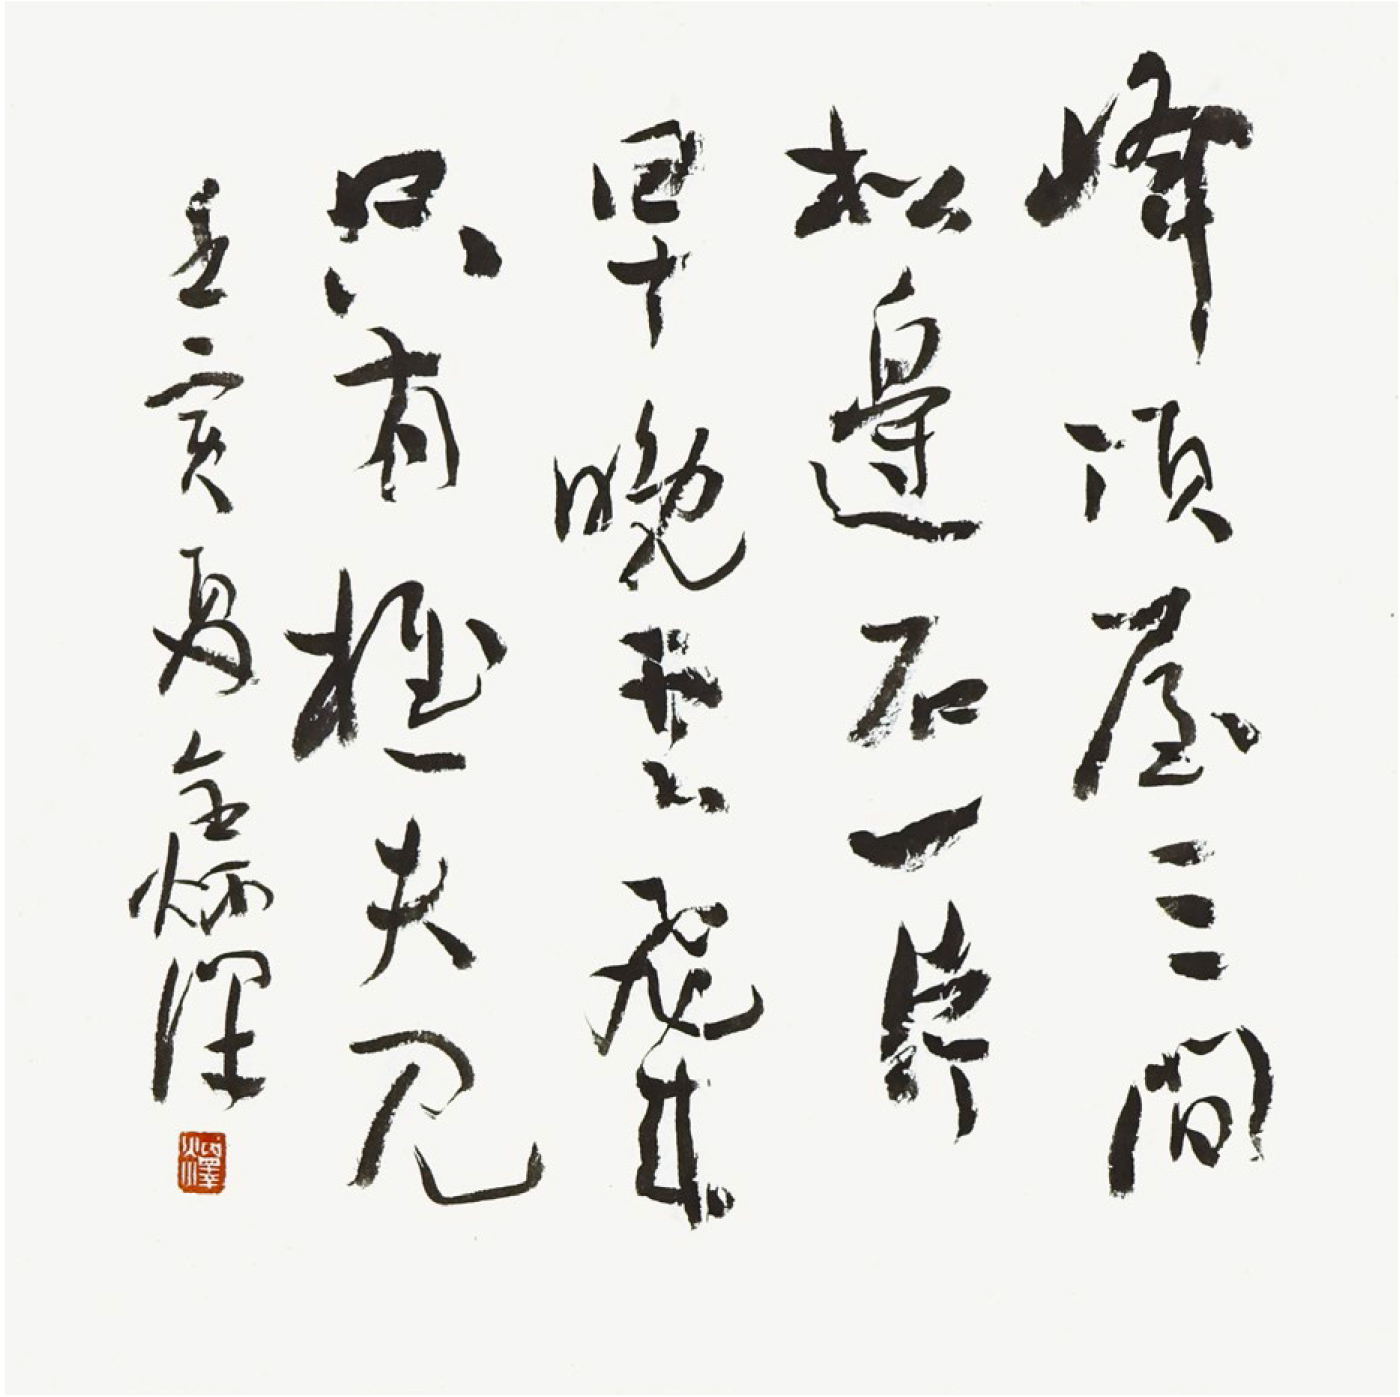 峰頂屋三間
松邊石一
早晚雲飛來
只有樵夫見
壬寅夏金炳澤